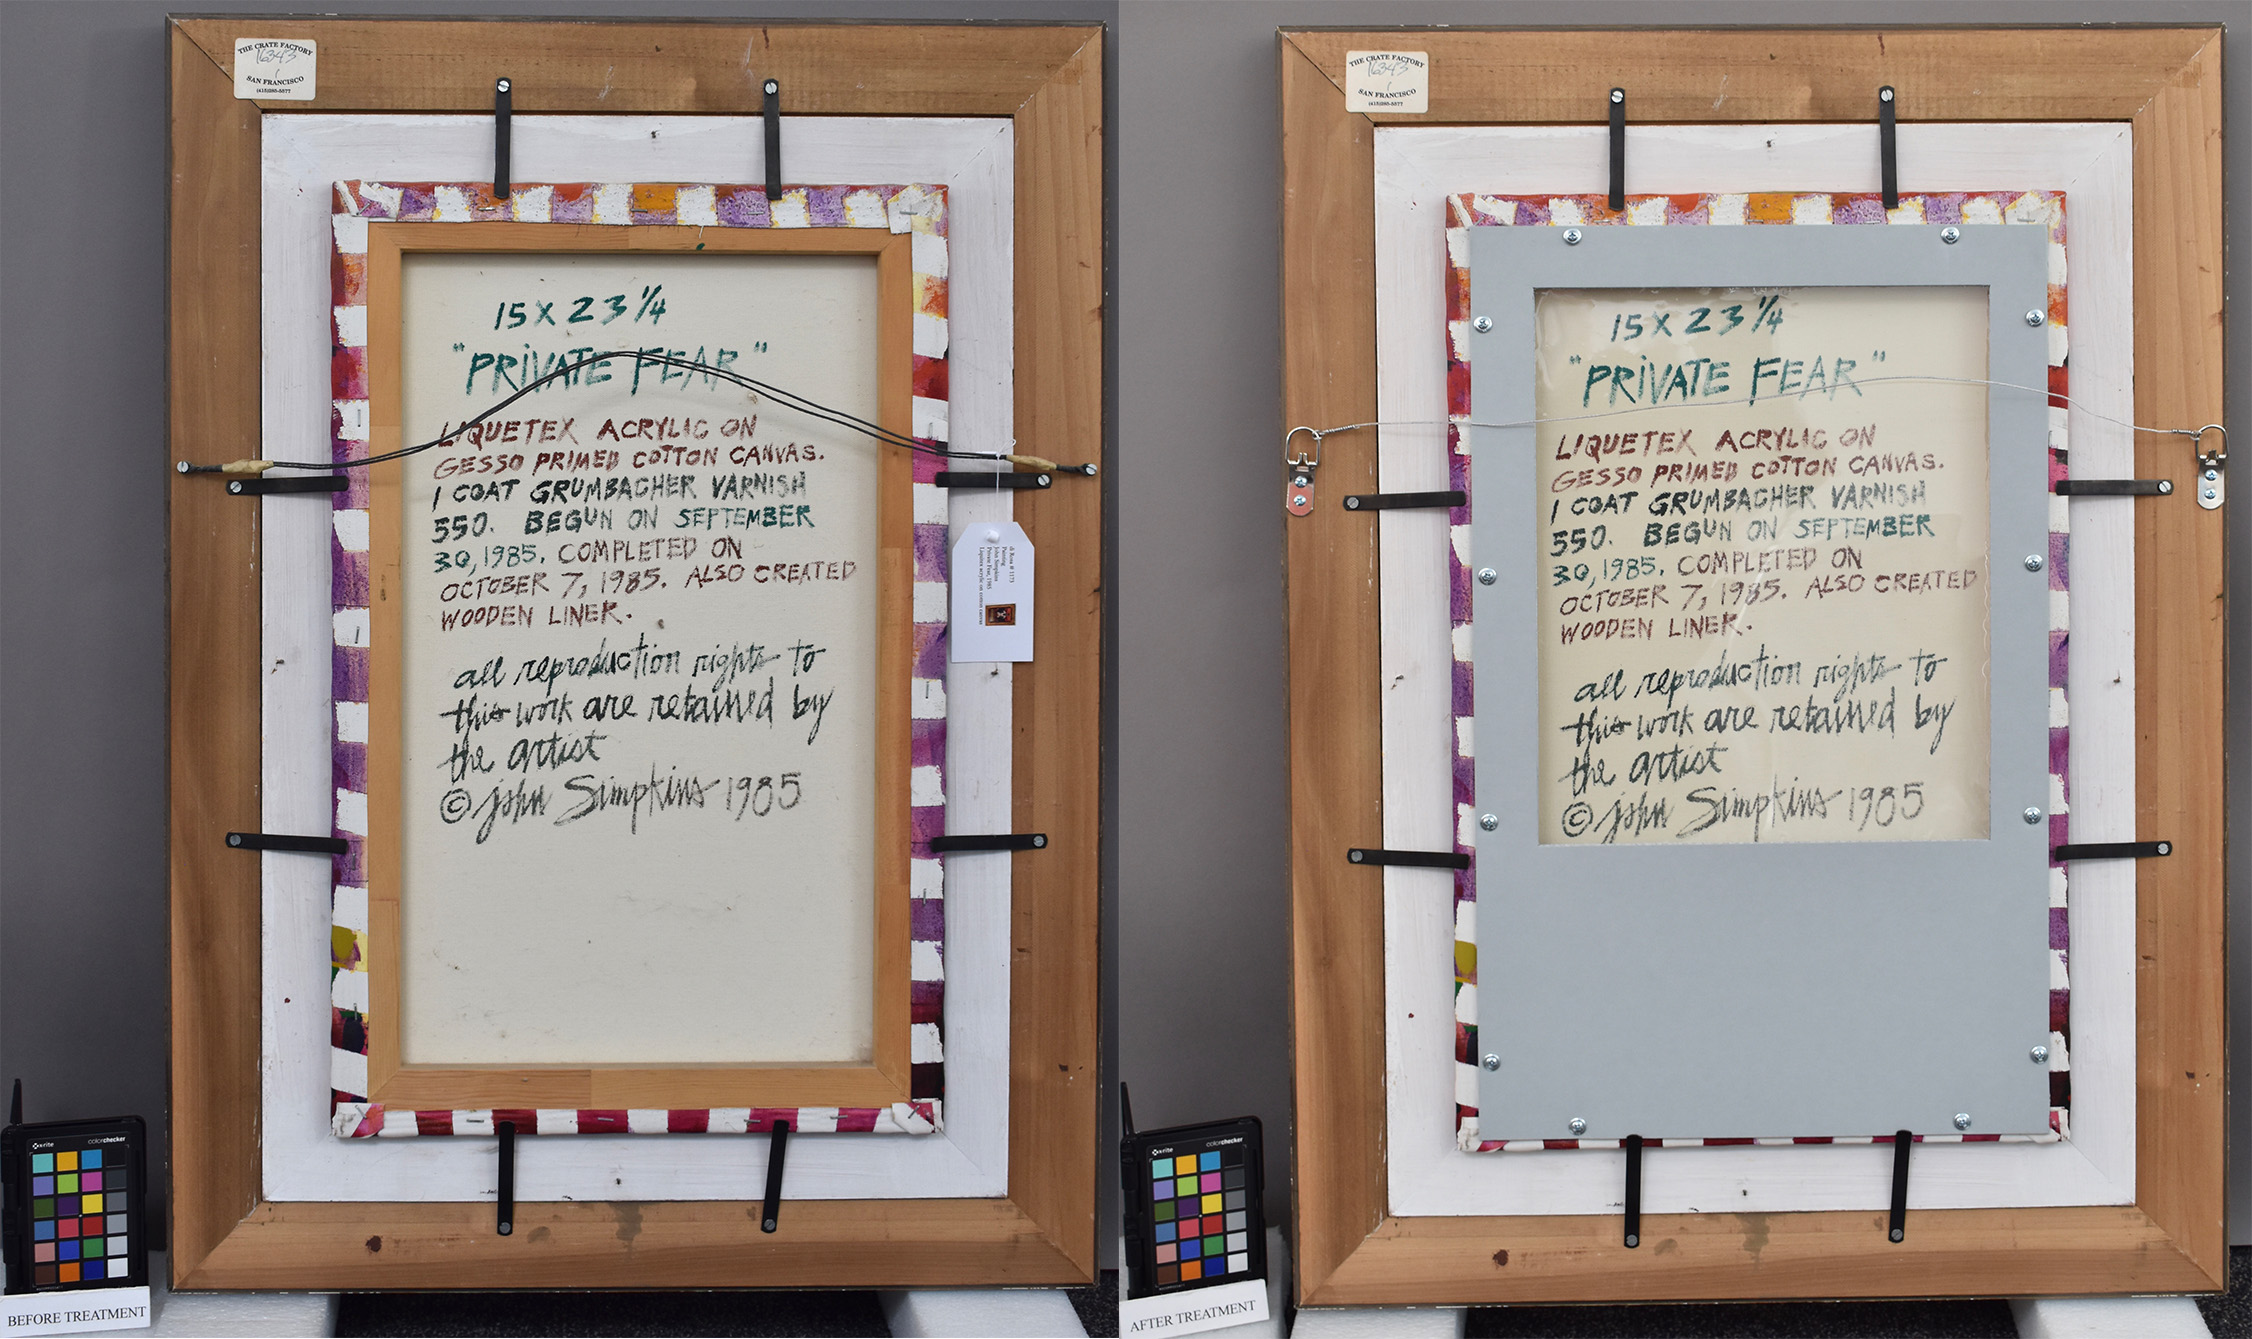 THE CRATE FACTORY
16343
SAN FRANCISCO
(415)285-5577
15 X 23 1/4
"PRIVATE FEAR"
LIQUETEX ACRYLIC ON
GESSO PRIMED COTTON CANVAS.
1 COAT GRUMBACHER VARNISH
550. BEGUN ON SEPTEMBER
30, 1985. COMPLETED ON
OCTOBER 7, 1985. ALSO CREATED
WOODEN LINER.
all reproduction rights to
this work are retained by
the artist
© john Simpkins 1985
di Rosa # 1173
Painting
John Simpkins
Private Fear, 1985
Liquitex acrylic on cotton canvas
x-rite colorchecker
BEFORE TREATMENT
THE CRATE FACTORY
16343
SAN FRANCISCO
(415)285-5577
15 X 23 1/4
"PRIVATE FEAR"
LIQUETEX ACRYLIC ON
GESSO PRIMED COTTON CANVAS.
1 COAT GRUMBACHER VARNISH
550. BEGUN ON SEPTEMBER
30, 1985. COMPLETED ON
OCTOBER 7, 1985. ALSO CREATED
WOODEN LINER.
all reproduction rights to
this work are retained by
the artist
© john Simpkins 1985
x-rite colorchecker
AFTER TREATMENT